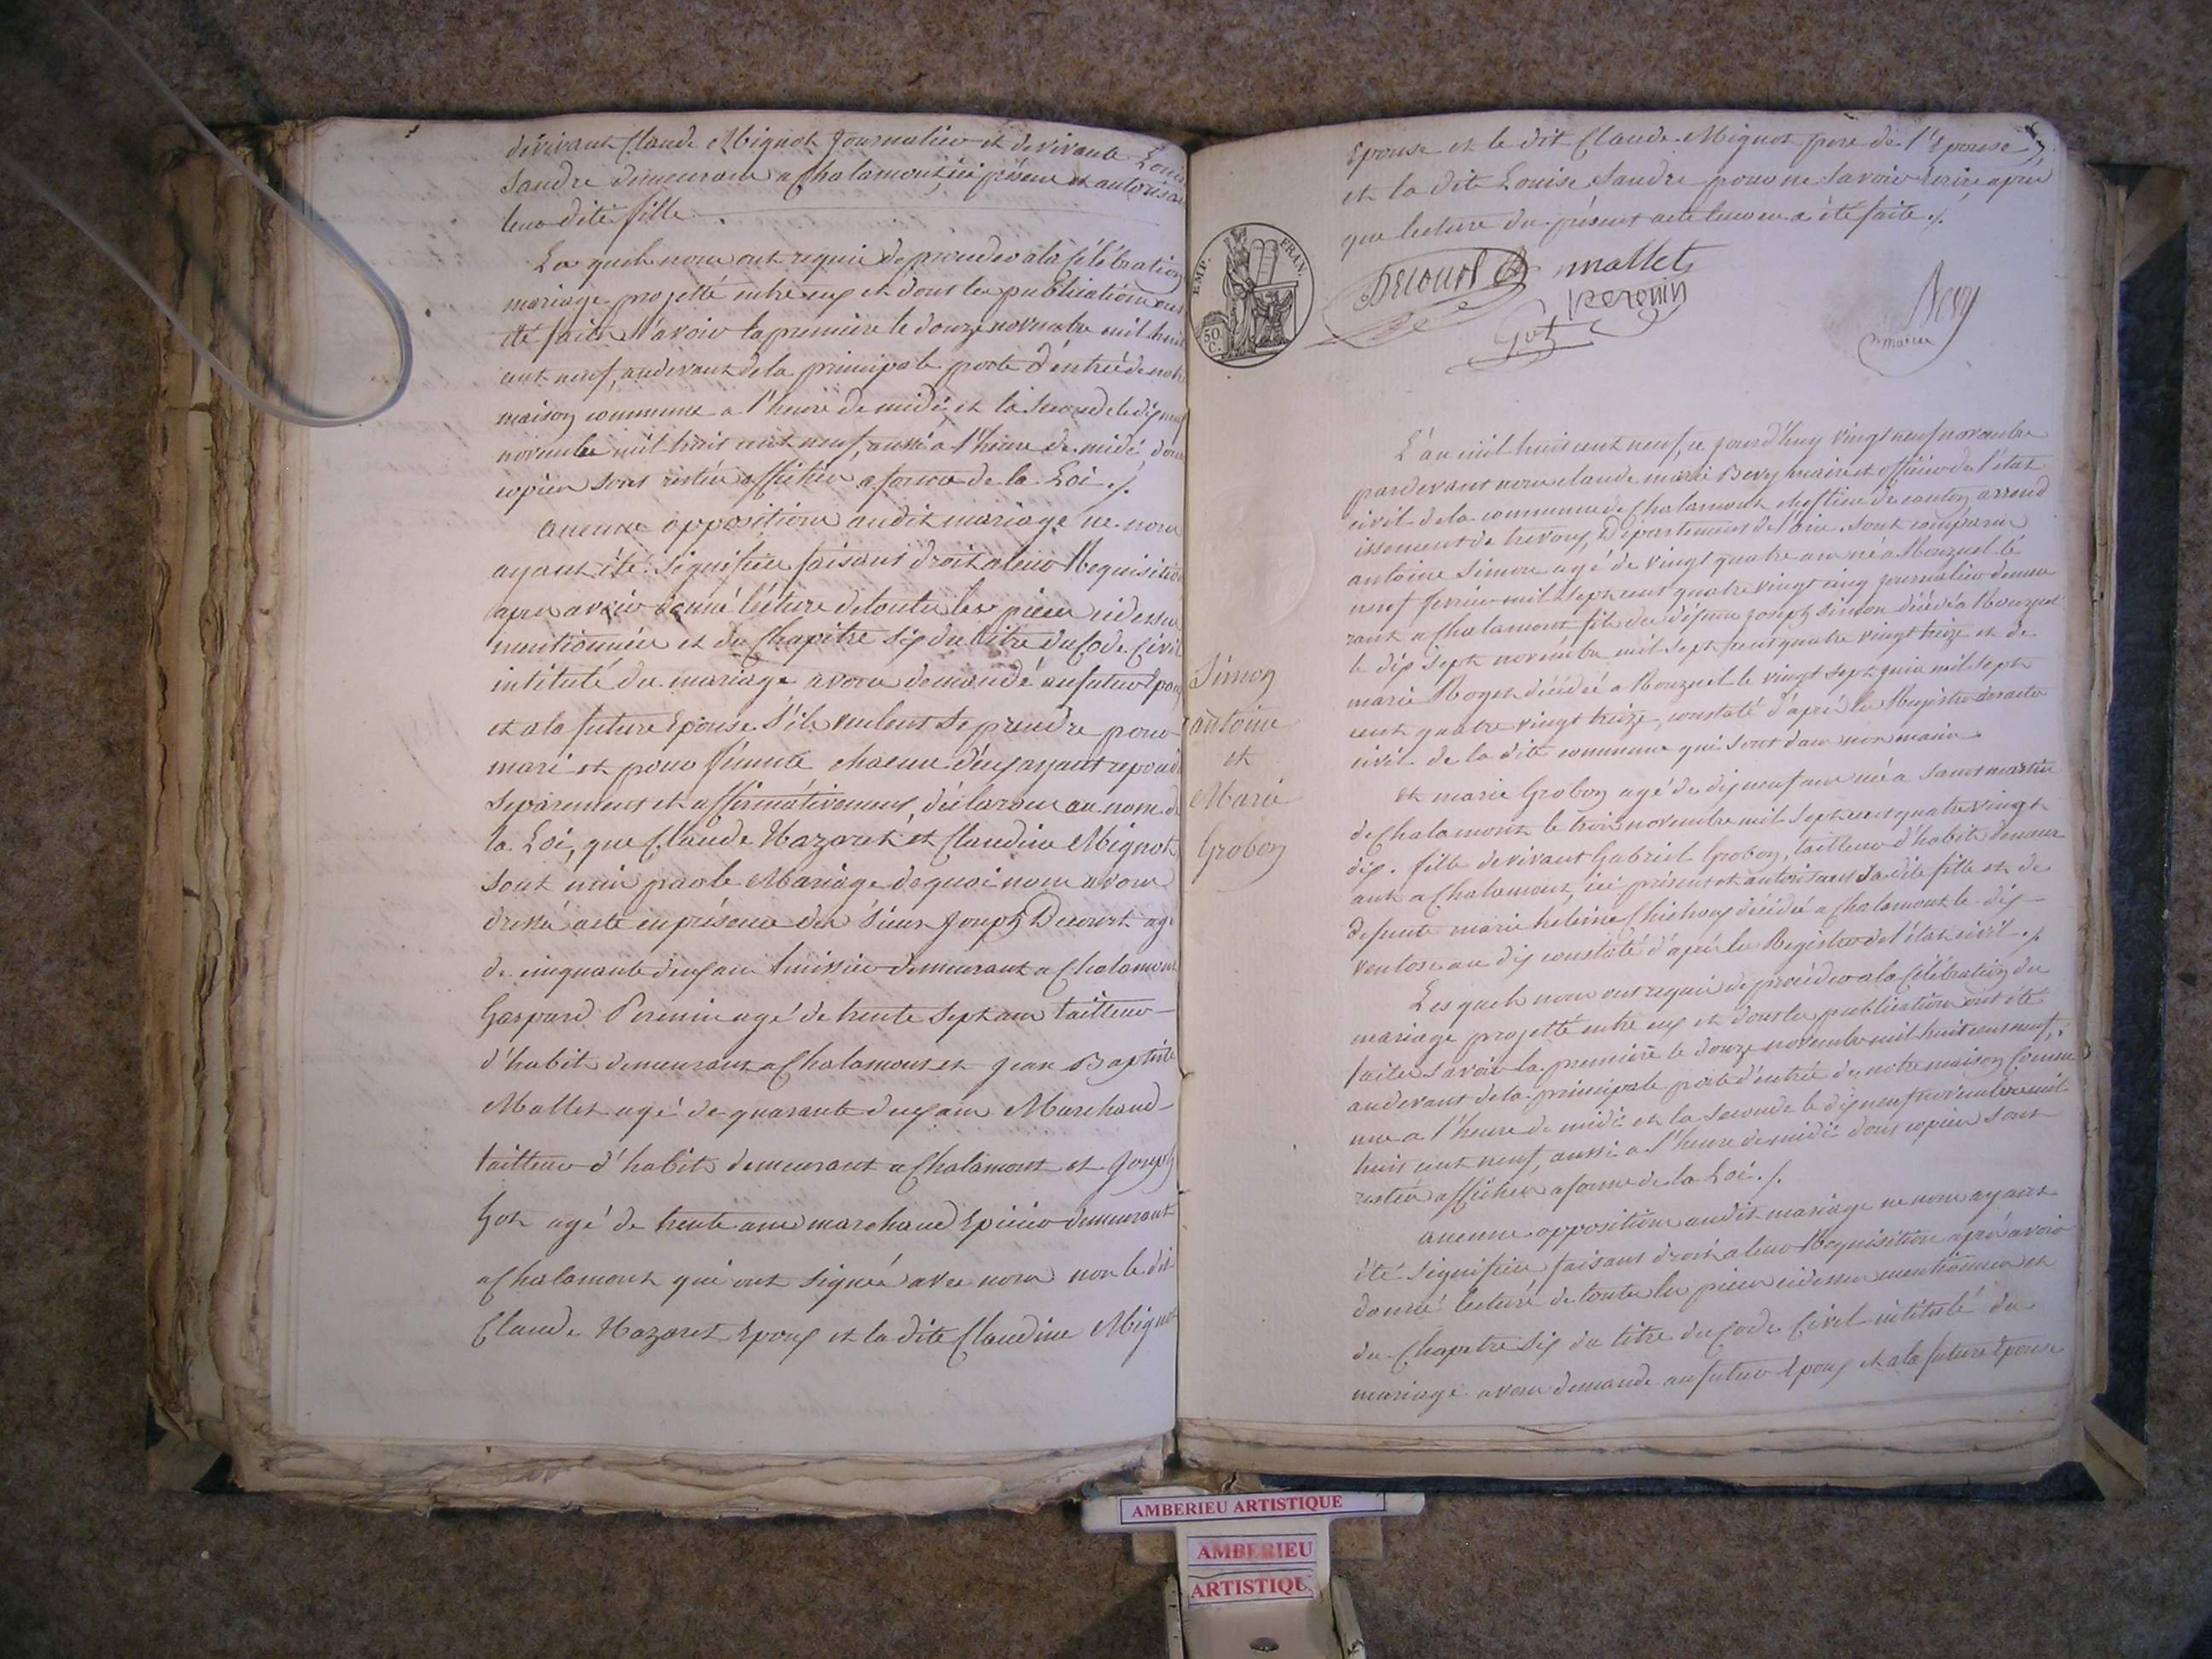 de vivant Claude Mignot Journalier et de vivante Louise
Sandre demeurant a Chalamont, ici présent et autorisant
leur dite fille
Les quels nous ont requis de proceder a la Célébration
mariage projetté entre eux et dont les publications ont
été faites Savoir la première le douze novembre mil huit
cent neuf, audevant de la principale porte d'entrée de notre
maison commune a l'heure de midi et la seconde le dix neuf
novembre mil huit cent neuf, aussi a l'heure de midi dont
copies sont restées affichées a forme de la Loi ./.
aucune opposition audit mariage ne nous
ayant été signifiée faisant droit a leur Requisition
après avoir donné lecture de toutes les pieces cidessus
mentionnées et du Chapitre six du titre du Code Civil
intitulé du mariage avons demandé au futur Epoux
et a la future Epouse s'ils veulent se prendre pour
mari et pour femme chacun d'eux ayant repondu
séparement et affirmativement, déclarons au nom de
la Loi, que Claude Nazaret et Claudine Mignot
sont unis par le Mariage de quoi nous avons
dressé acte en présence des Sieurs Joseph Decourt agé
de cinquante deux ans huissier demeurant a Chalamont
Gaspard Perenin agé de trente sept ans tailleur
d'habit demeurant a Chalamont et Jean Baptiste
Mallet agé de quarante deux ans Marchand
tailleur d'habits demeurant a Chalamont et Joseph
Got agé de trente ans marchand Epicier demeurant
a Chalamont qui ont signé avec nous non le dit
Claude Nazaret Epoux et la dite Claudine Mignot
Epouse et le dit Claude Mignot pere de l'Epouse
et la dite Louise Sandre pour ne savoir écrire après
que lecture du présent acte leur en a été faite ./.
EMP. FRAN.
50 C.
Decourt mallet
perenin
Got
Bery
maire
Simon
antoine
et
Marie
Grobon
L'an mil huit cent neuf, ce jourd'huy vingt neuf novembre
pardevant nous claude marie Bery maire et officier de l'état
civil de la commune de Chalamont chef lieu de canton arrond
issement de trevoux, Département de l'ain. sont comparus
antoine Simon agé de vingt quatre ans né a
neuf fevrier mil sept cent quatre vingt cinq journalier demeu
rant a Chalamont fils de défunt joseph Simon décédé a
le dix sept novembre mil sept cent quatre vingt treize et de
marie Roget décédée a le vingt sept juin mil sept
cent quatre vingt treize, constaté d'après les Registres des actes
civil de la dite commune qui sont dans nos mains.
et marie Grobon agé de dix neuf ans née a saint martin
de Chalamont le trois novembre mil sept cent quatre vingt
dix. fille de vivant Gabriel Grobon, tailleur d'habits demeur
ant a Chalamont, ici présent et autorisant sa dite fille et de
defunte marie helaine décédée a Chalamont le dix
ventose an dix constaté d'après les Registres de l'état civil ./.
Les quels nous ont requis de proceder a la Célébration du
mariage projetté entre eux et dont les publications ont été
faites savoir la première le douze novembre mil huit cent neuf,
audevant de la principale porte d'entrée de notre maison Commu
ne a l'heure de midi et la seconde le dix neuf novembre mil
huit cent neuf, aussi a l'heure de midi dont copies sont
restées affichées a forme de la Loi ./.
aucune opposition audit mariage ne nous ayant
été signifiée faisant droit a leur Requisition après avoir
donné lecture de toutes les pieces cidessus mentionnées et
du Chapitre six du titre du Code Civil intitulé du
mariage avons demandé au futur Epoux et a la future Epouse
AMBERIEU ARTISTIQUE
AMBERIEU
ARTISTIQU